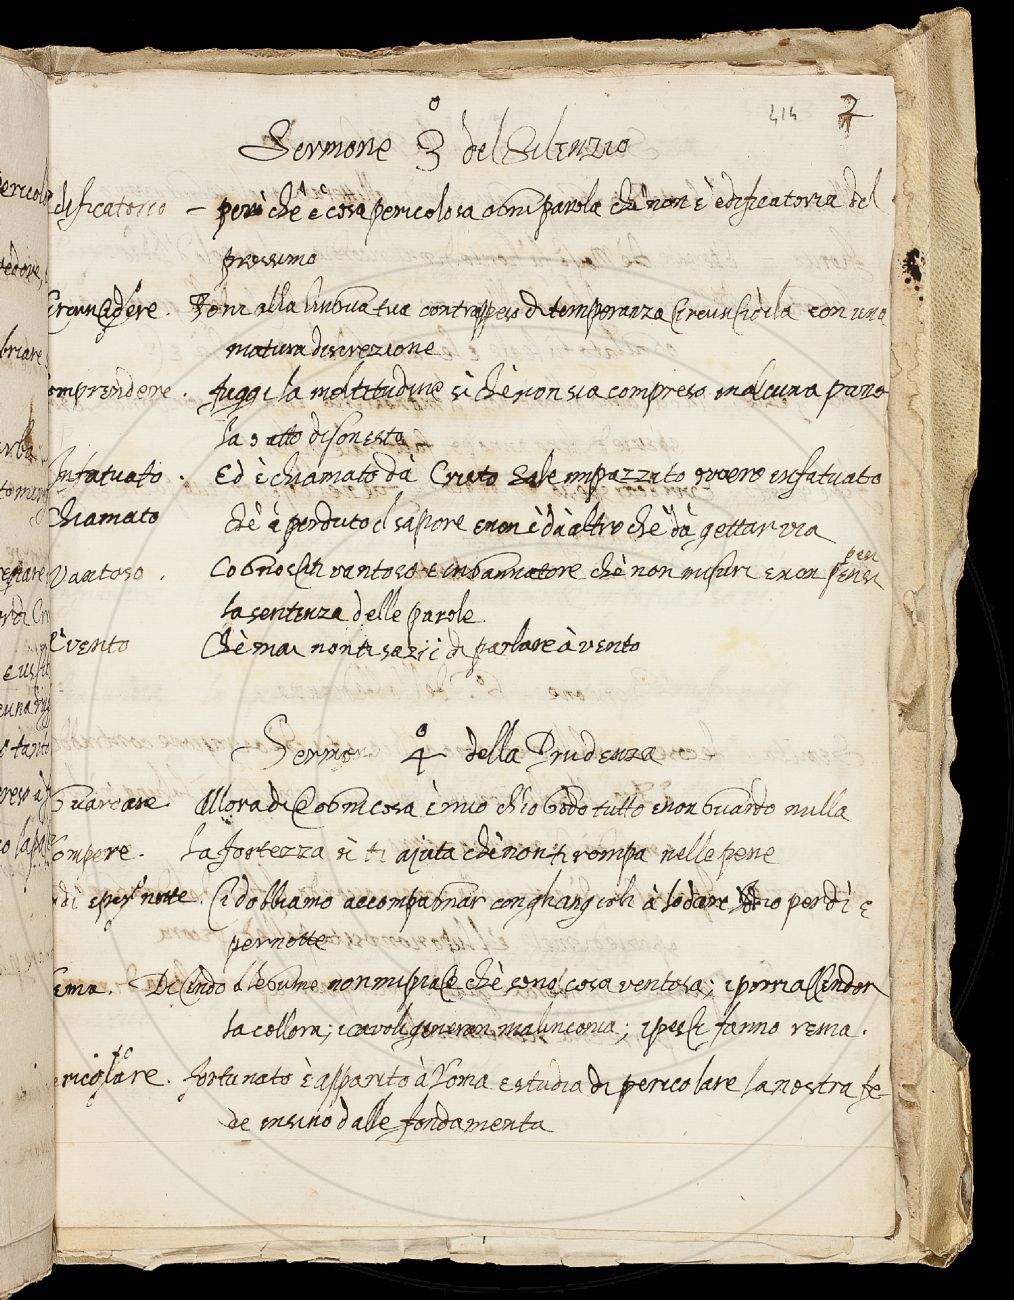 414 2
Sermone 3° del Silenzio
edificatorio – però chè è cosa pericolosa ogni parola chè non è edificatoria del
prossimo
Circuncidere. Poni alla lingua tua contrappeso di temperanza Circuncidila con una
matura discrezione
comprendere. fuggi la moltitudine sì chè non sia compreso in alcuna paro
la o atto disonesto
Infatuato. Ed è chiamato dà Cristo Sale impazzito ovvero infatuato
Chiamato chè à perduto il sapore e non è dà altro chè dà gettar via
Vantoso. Cognoscili vantoso e ingannatore chè non misuri e non pensi
pesi
la sentenza delle parole.
E vento Chè mai non ti sazii di parlare à vento
Sermone 4° della Prudenza
Guardare. Allora dice ogni cosa è mio ch'io godo tutto e non guardo nulla
rompere. La fortezza sì ti ajuta chè non ti rompa nelle pene
dì e per notte. Ci dobbiamo accompagnar con gli angioli à lodare Iddio per dì e
per notte
rema. Dicendo i legume non mi piace chè sono cosa ventosa; i porri accendon
la collora; i cavoli generan malinconia; i pesci fanno rema.
pericolare. fortunato è apparito à Roma e studia di pericolare la nostra fe-
de insino dalle fondamenta